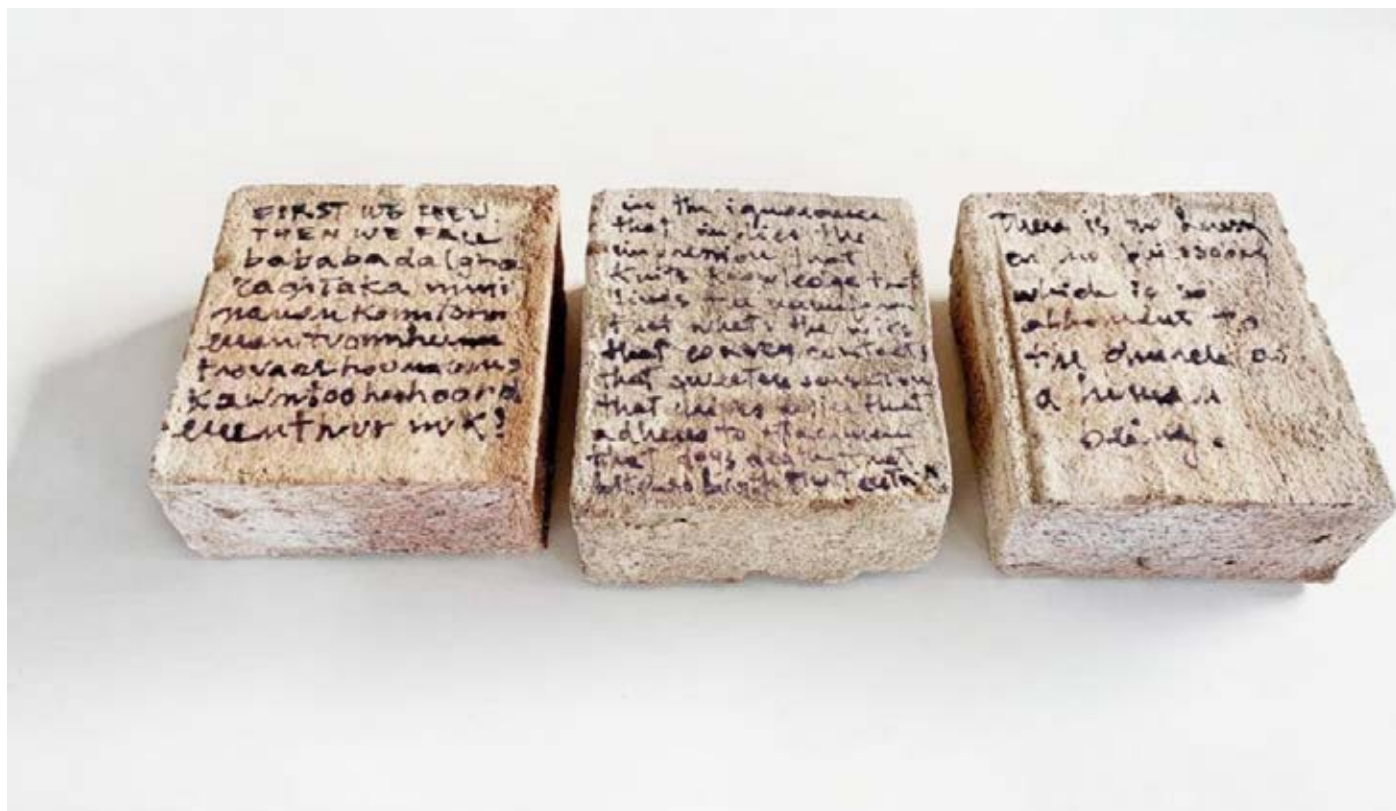 FIRST WE FEEL.
THEN WE FALL
bababadalgha
raghTaKa mmi
naronnKonnbron
tonntronnthunn
trovarrhounawns
Kawntoohoohoord
enenthur nuK!
in the ignorance
that implies the
impression that
Knits Knowledge that
finds the nameform
that whets the wits
that convey contacts
that sweeten sensation
that drives desire that
adheres to attachment
that dogs death that
bitches birth that entails
There is no heresy
or no philosophy
which is so
abhorrent to
the church as
a human
being.